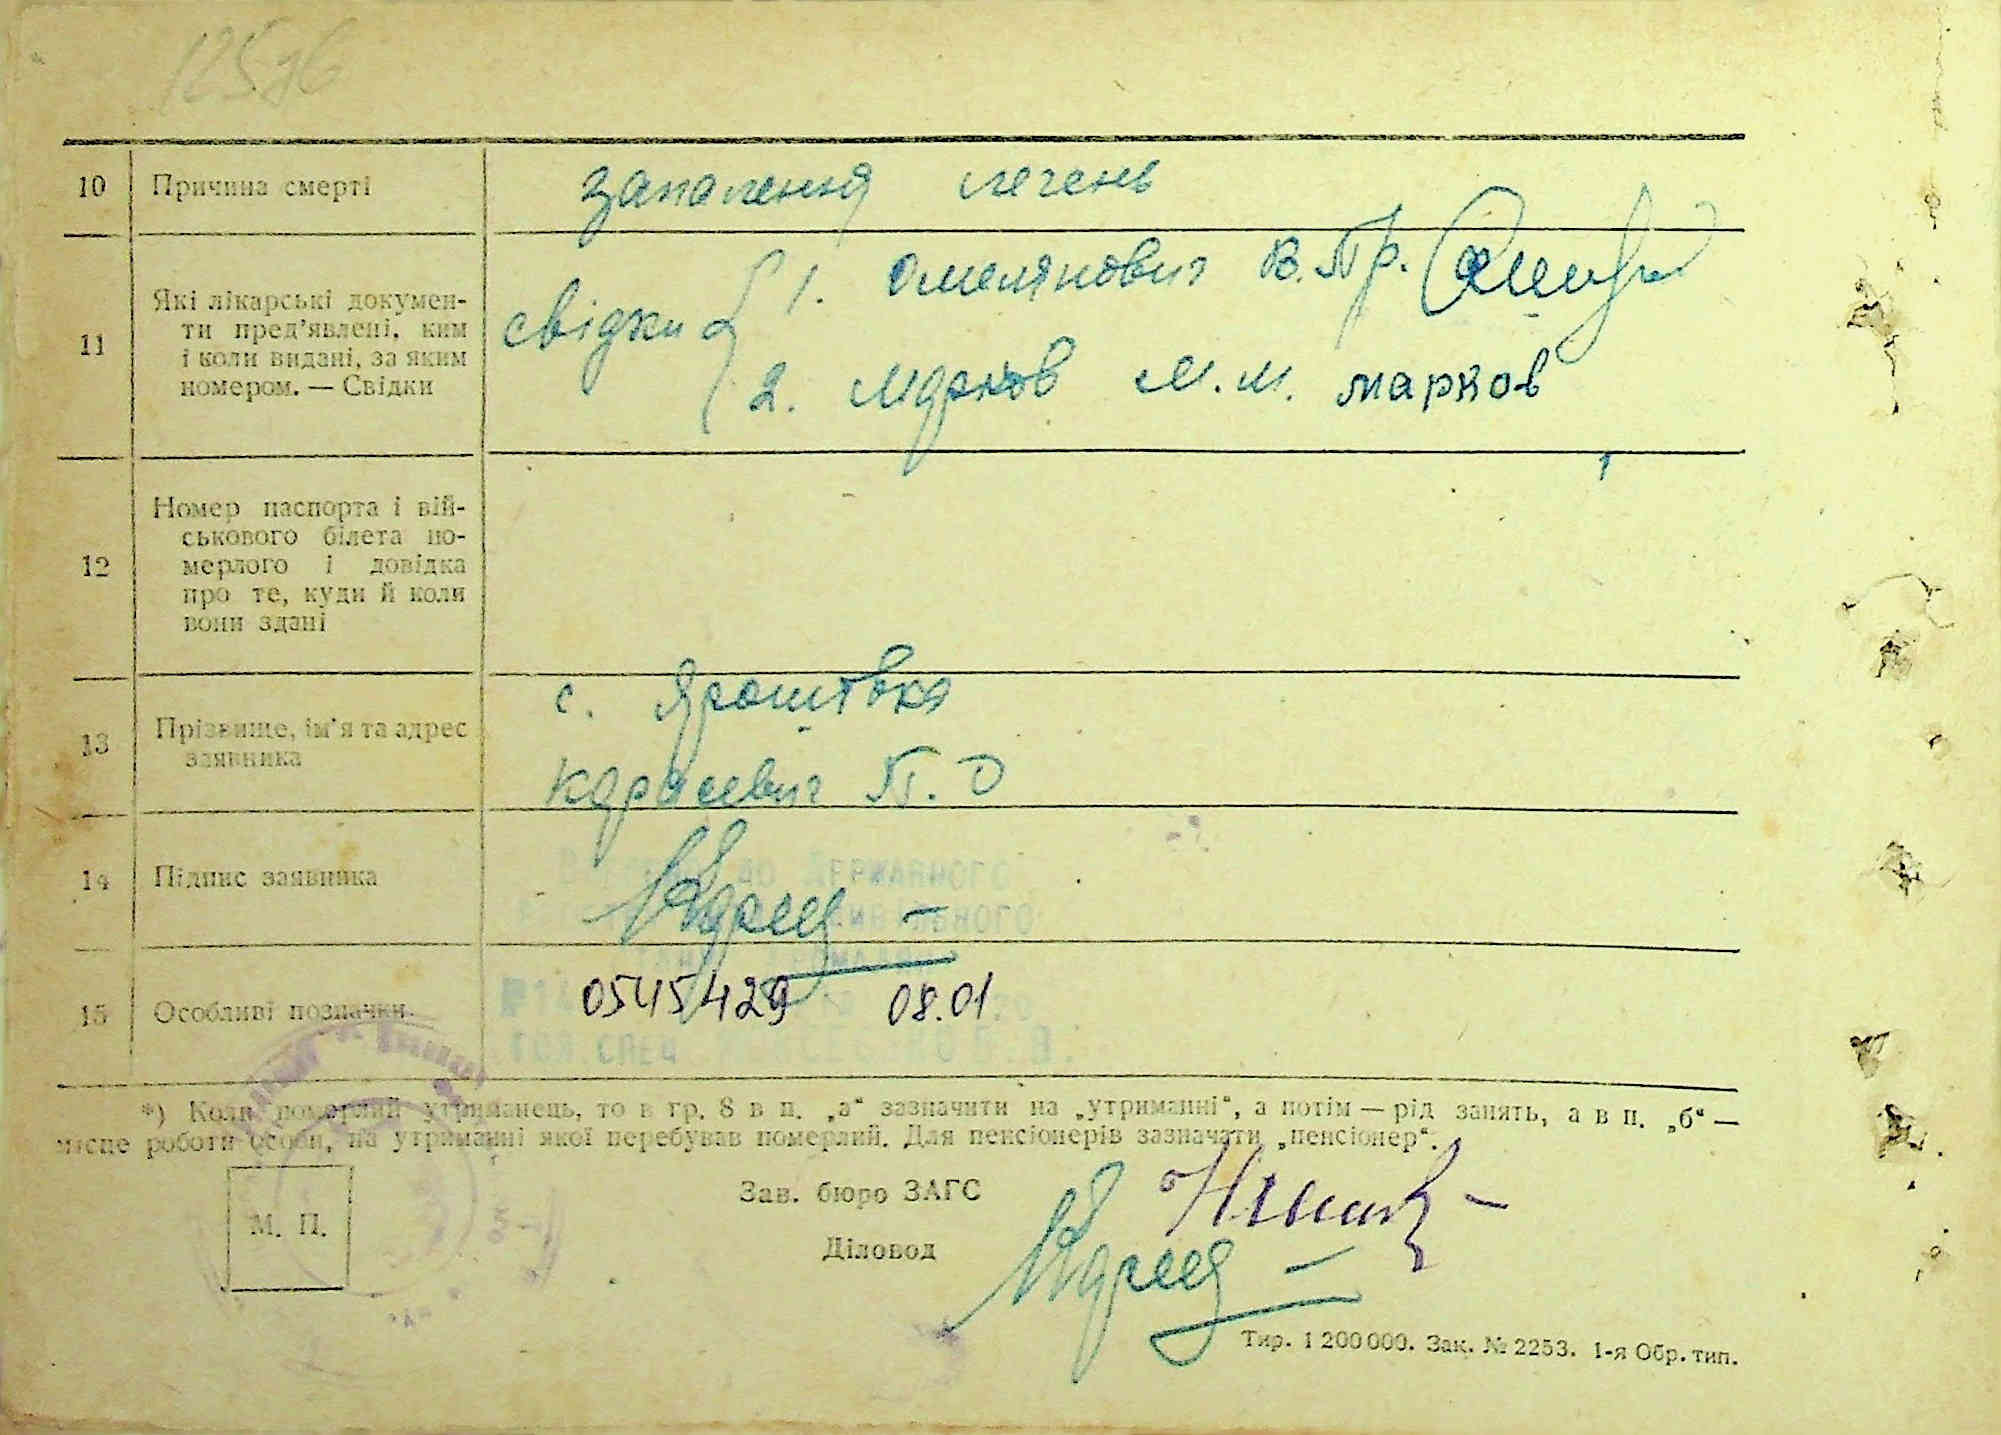 10 Причина смерті запалення легень
11 Які лікарські докумен-
ти пред'явлені, ким
і коли видані, за яким
номером. — Свідки
свідки 1. Омелянович В. Пр.
2. Марков М. М. Марков
12 Номер паспорта і вій-
ськового білета по-
мерлого і довідка
про те, куди й коли
вони здані
13 Прізвище, ім'я та адрес
заявника
с. Ярошівка
Карасевич П. О
14 Підпис заявника
Державного
15 Особливі позначки
0545429 08.01
*) Коли померлий утриманець, то в гр. 8 в п. „а“ зазначити на „утриманні“, а потім — рід занять, а в п. „б“ —
місце роботи особи, на утриманні якої перебував померлий. Для пенсіонерів зазначати „пенсіонер“.
М. П.
Зав. бюро ЗАГС
Діловод
Тир. 1 200 000. Зак. № 2253. 1-я Обр. тип.